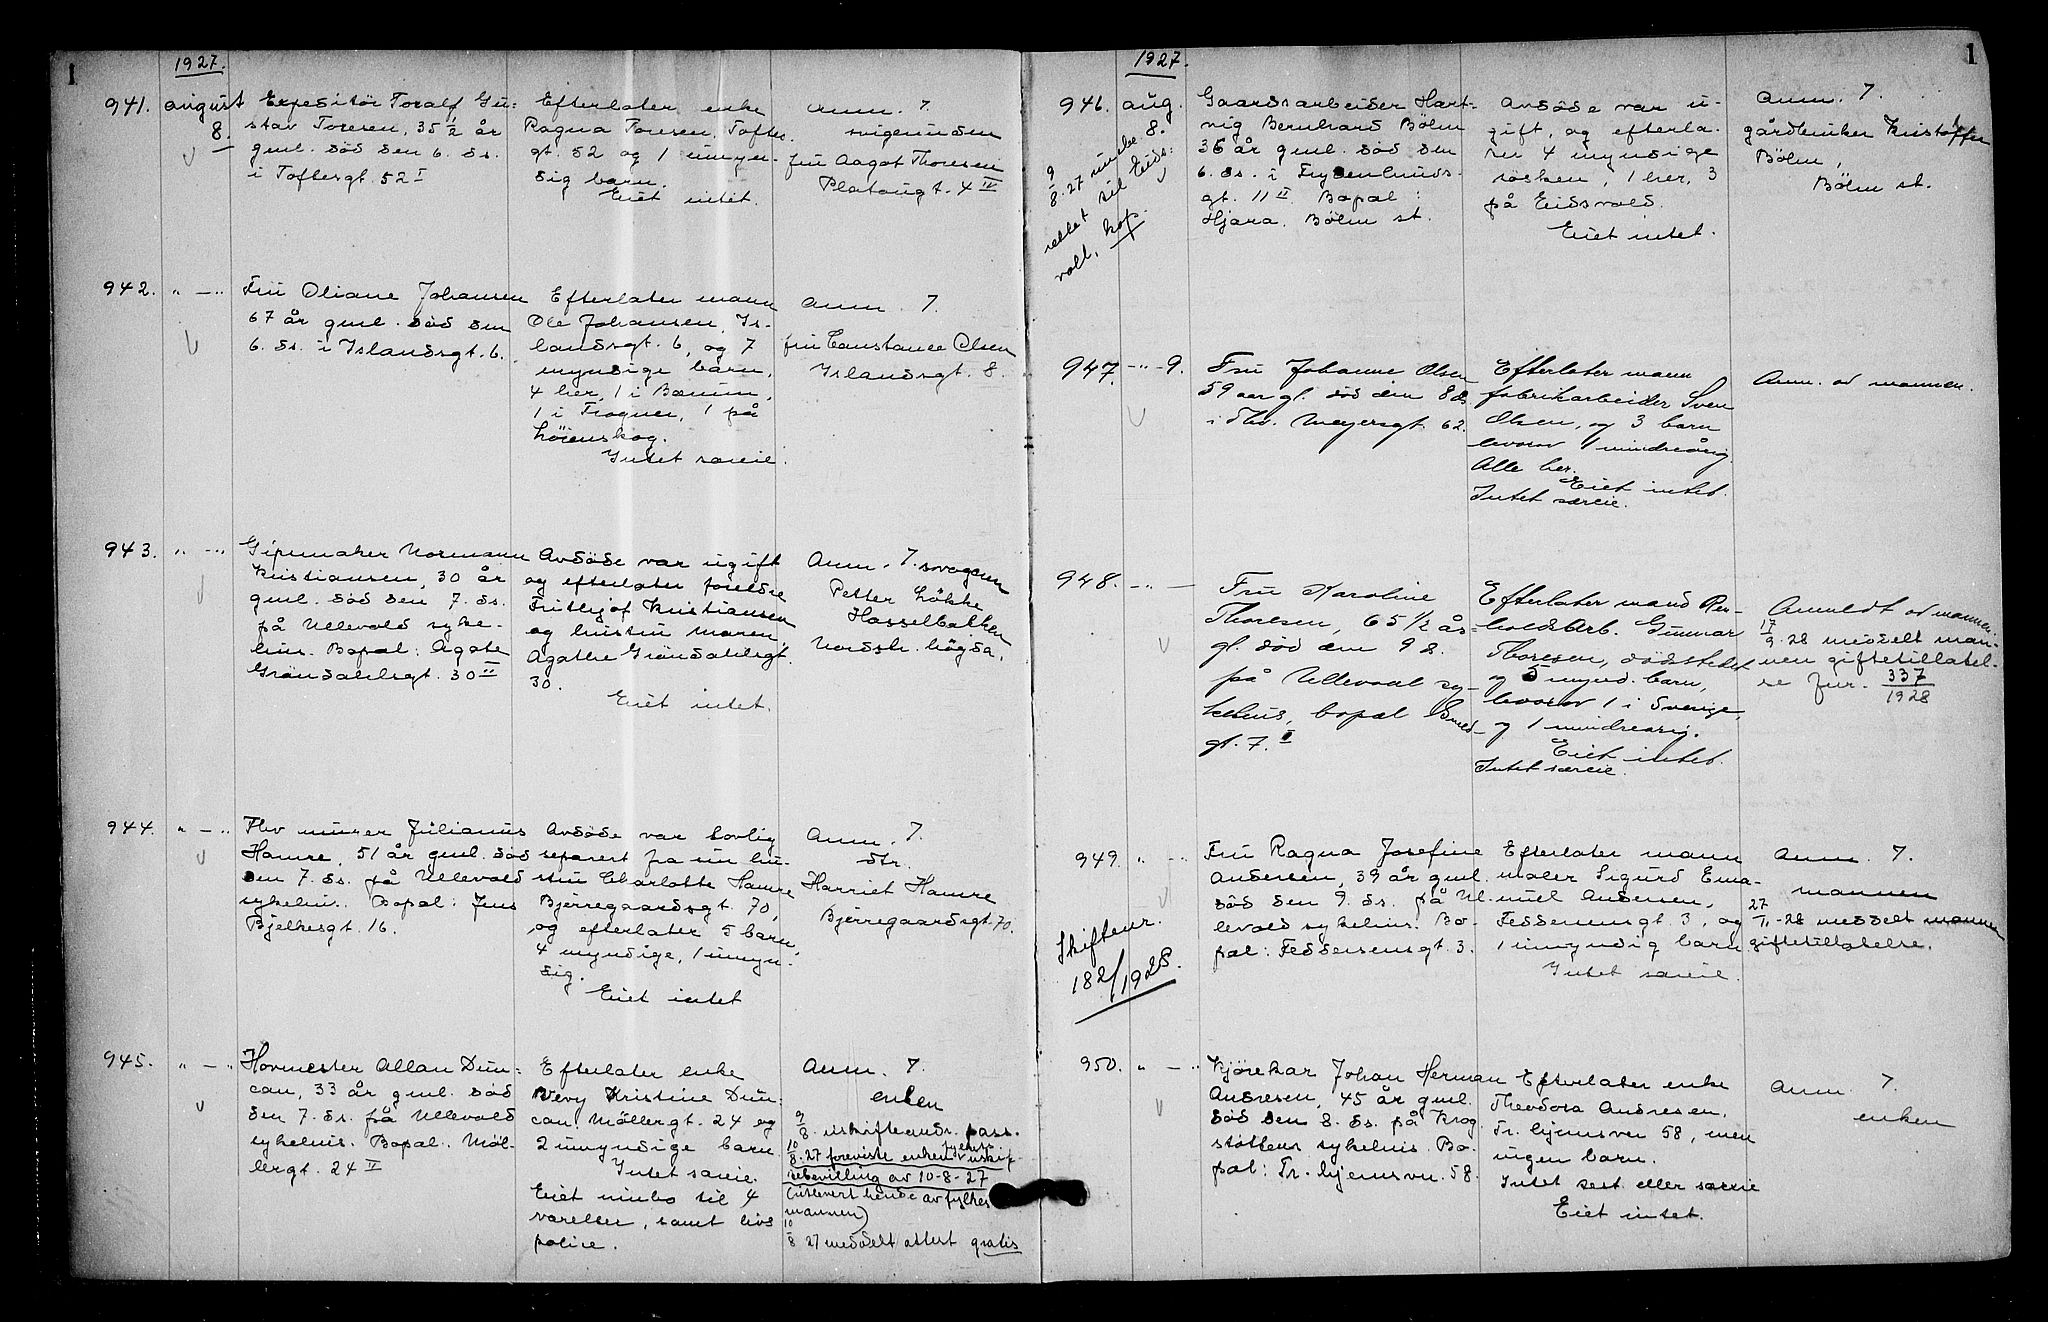 1
1927.
941.
august
8.
Expeditör Toralf Gu-
stav Toresen, 35 1/2 år
gml. död den 6. ds.
i Toftesgt. 52 I
Efterlater enke
Ragna Toresen, Toftes-
gt. 52 og 1 umyn-
dig barn.
Eiet intet.
Anm. 7.
svigerinden
fru Aagot Thoresen
Platougt. 4 IV
942.
" — "
Fru Oliane Johansen
67 år gml. död den
6. ds. i Islandsgt. 6.
Efterlater mann
Ole Johansen, Is-
landsgt. 6, og 7
myndige barn,
4 her, 1 i Bærum,
1 i Frogner, 1 på
Löienskog.
Intet særeie.
Anm. 7.
fru Constance Olsen
Islandsgt. 8.
943.
" — "
Gipsmaker Normann
Kristiansen, 30 år
gml. död den 7. ds.
på Ullevold syke-
hus. Bopal: Agate
Gröndahlsgt. 30 II
Avdöde var ugift
og efterlater foreldre
Frithjof Kristiansen
og hustru Maren,
Agathe Gröndahlsgt.
30.
Eiet intet.
Anm. 7. svogeren
Petter Lökke
Hasselbakken
Nordstr. högda.
944.
" — "
Fhv murer Julianus
Hamre, 51 år gml. död
den 7. ds. på Ullevold
sykehus. Bopal: Jens
Bjelkesgt. 16.
Avdöde var lovlig
separert fra sin hu-
stru Charlotte Hamre
Bjerregaardsgt. 70,
og efterlater 5 barn,
4 myndige, 1 umyn-
dig.
Eiet intet
Anm. 7.
dtr.
Harriet Hamre
Bjerregaardsgt. 70.
945.
" — "
Hovmester Allan Dun-
can, 33 år gml. död
den 7. ds. på Ullevold
sykehus. Bopal: Möl-
lergt. 24 V
Efterlater enke
Vevy Kristine Dun-
can, Möllergt. 24 og
2 umyndige barn
Intet særeie.
Eiet innbo til 4
værelser, samt livs
police.
Anm. 7.
enken
9/8. uskifteandr. pass.
10/8. 27 foreviste enken uskif-
tebevilling av 10-8-27
(utlevert hende av fylkes
mannen)
10/8 27 meddelt attest gratis
1
1927.
946.
aug.
8.
9/8. 27
rettet til Eids-
vold, kop.
Gaardsarbeider Hart-
vig Bernhard Böhn
36 år gml. död den
6. ds. i Frydenlunds-
gt. 11 II. Bopal:
Hjara, Böhn st.
Avdöde var u-
gift, og efterla-
ter 4 myndige
sösken, 1 her, 3
på Eidsvold.
Eiet intet.
Anm. 7.
gårdbruker Kristoffer
Böhn,
Böhn st.
947.
-"- 9.
Fru Johanne Olsen
59 aar gl. död den 8 ds
i Thv. Meyersgt. 62.
Efterlater mann
fabrikarbeider Sven
Olsen, og 3 barn
hvorav 1 mindreårig.
Alle her.
Eiet intet.
Intet særeie.
Anm. av mannen.
948.
-"- —
Fru Karoline
Thoresen, 65 1/2 år
gl. död den 9 ds.
på Ullevaal sy-
kehus, bopal
gt. 7. I
Efterlater mand Ren-
holdsarb. Gunnar
Thoresen, dödstedet
og 5 mynd. barn,
hvorav 1 i Sverige,
og 1 mindreårig.
Eiet intet.
Intet særeie.
Anmeldt av mannen.
17/9. 28 meddelt man-
nen giftetillatel-
se Jnr. 337/1928
949.
" — "
Skiftenr.
182/1928.
Fru Ragna Josefine
Andersen, 39 år gml.
död den 9. ds. på Ul-
levold sykehus. Bo-
pal: Feddersensgt. 3.
Efterlater mann
maler Sigurd Ema-
nuel Andersen,
Feddersensgt. 3, og
1 umyndig barn
Intet særeie.
Anm. 7.
mannen
27/11-28 meddelt mannen
giftetillatelse.
950.
" — "
Kjörekar Johan Herman
Andresen, 45 år gml.
död den 8. ds. på Krog
stöttens sykehus. Bo-
pal: Tr. hjemsvn. 58.
Efterlater enke
Theodora Andresen,
Tr. hjemsvei 58, men
ingen barn.
Intet test. eller særeie
Eiet intet.
Anm. 7.
enken